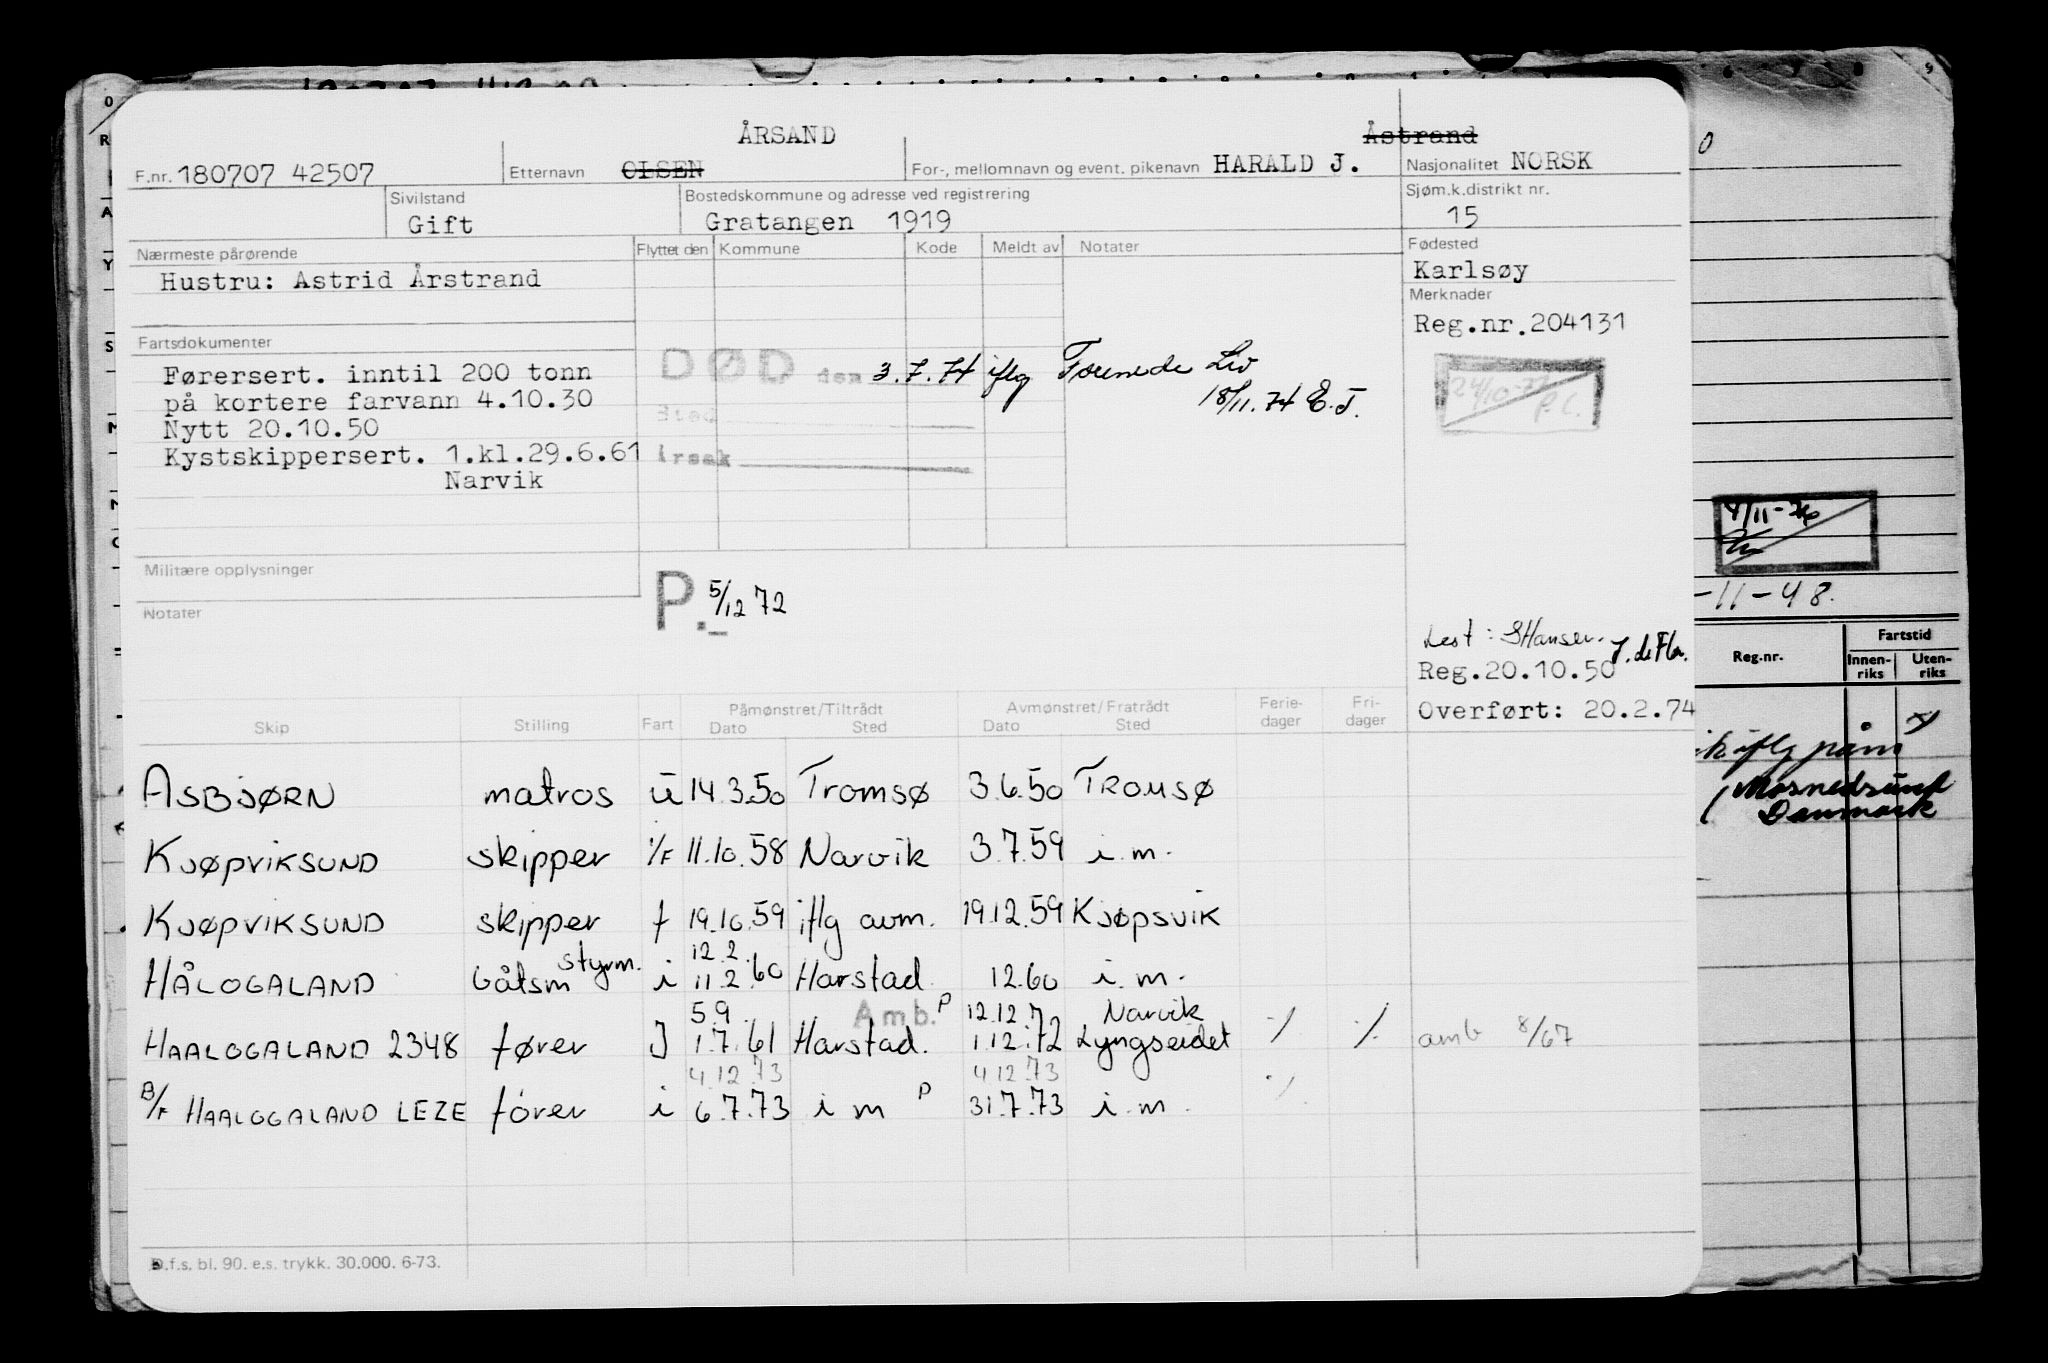 ÅRSAND Åstrand
F.nr. 180707 42507 Etternavn OLSEN For-, mellomnavn og event. pikenavn HARALD J. Nasjonalitet NORSK
Sivilstand Bostedskommune og adresse ved registrering Sjøm.k.distrikt nr.
Gift Gratangen 1919 15
Nærmeste pårørende Flyttet den Kommune Kode Meldt av Notater Fødested
Hustru: Astrid Årstrand Karlsøy
Merknader
Reg.nr. 204131
Fartsdokumenter
Førersert. inntil 200 tonn DØD den 3.7.74 iflg Forenede Liv
på kortere farvann 4.10.30 Sted 18/11.74 E.J.
24/10-77 P.C.
Nytt 20.10.50
Kystskippersert. 1.kl.29.6.61 Årsak
Narvik
8/11-
Militære opplysninger
P. 5/12 72
-11-48.
Notater
Lest: SHansen. J. de Flon.
Reg.20.10.50
Reg.nr. Fartstid
Innen-riks Uten-riks
Overført: 20.2.74
Skip Stilling Fart Påmønstret/Tiltrådt Dato Sted Avmønstret/Fratrådt Dato Sted Ferie-dager Fri-dager
iflg påm
ASBJØRN matros u 14.3.50 Tromsø 3.6.50 TROMSØ
Masnedsund
Danmark
KJØPVIKSUND skipper i/F 11.10.58 Narvik 3.7.59 i.m.
KJØPVIKSUND skipper f 19.10.59 iflg avm. 19.12.59 KJØPSVIK
styrm. 12.2.
HÅLOGALAND båtsm i 11.2.60 Harstad 12.60 i.m.
5.9. Amb. P 12.12.7 Narvik
HAALOGALAND 2348 fører J 1.7.61 Harstad. 1.12.72 Lyngseidet ./. ./. amb 8/67
4.12.73 4.12.73 ./.
B/F HAALOGALAND LEZE fører i 6.7.73 i m P 31.7.73 i.m.
D.f.s. bl. 90. e.s. trykk. 30.000. 6-73.